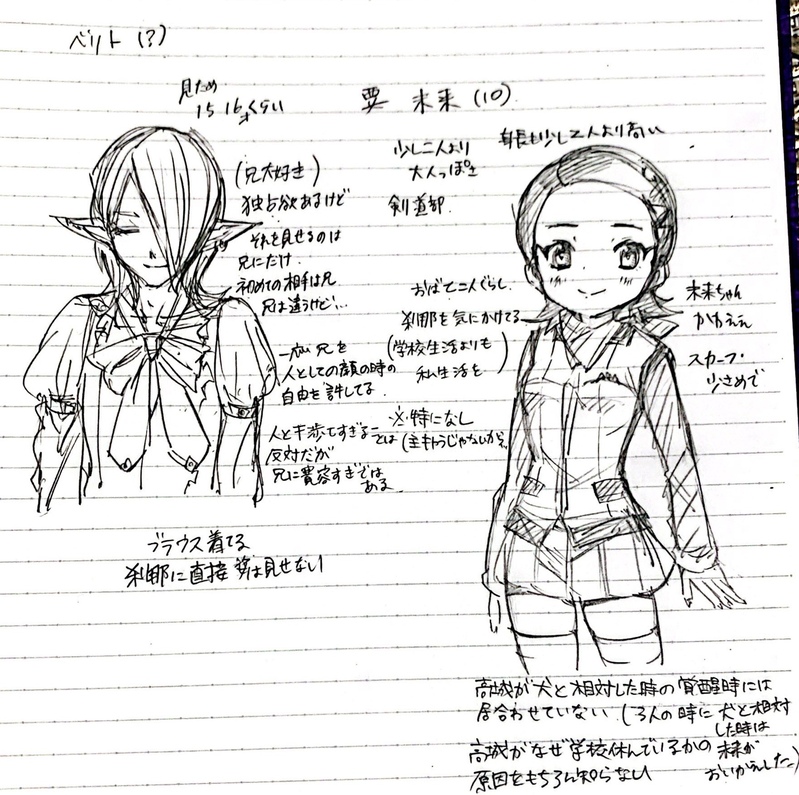 ベリト(?)
見ため
15 16才くらい
(兄大好き)
独占欲あるけど
それを見せるのは
兄にだけ.
初めての相手は兄
兄は違うけど…
一応兄を
人としての顔の時の
自由を許してる.
人と干歩しすぎることは
反対だが
兄に寛容すぎでは
ある.
ブラウス着てる
刹那に直接 姿は見せない
要 未来 (10)
少し二人より
大人っぽさ
身長も少し二人より高い
剣道部.
おばと二人ぐらし.
刹那を気にかけてる
(学校生活よりも
私生活を)
※特になし
(主キャラじゃないから.
未来ちゃん
かわええ
スカーフ・
少さめで
高城が犬と相対した時の覚醒時には
居合わせていない (3人の時に犬と相対
した時は
未来が
おいかえした)
高城がなぜ学校休んでいるかの
原因をもちろん知らない